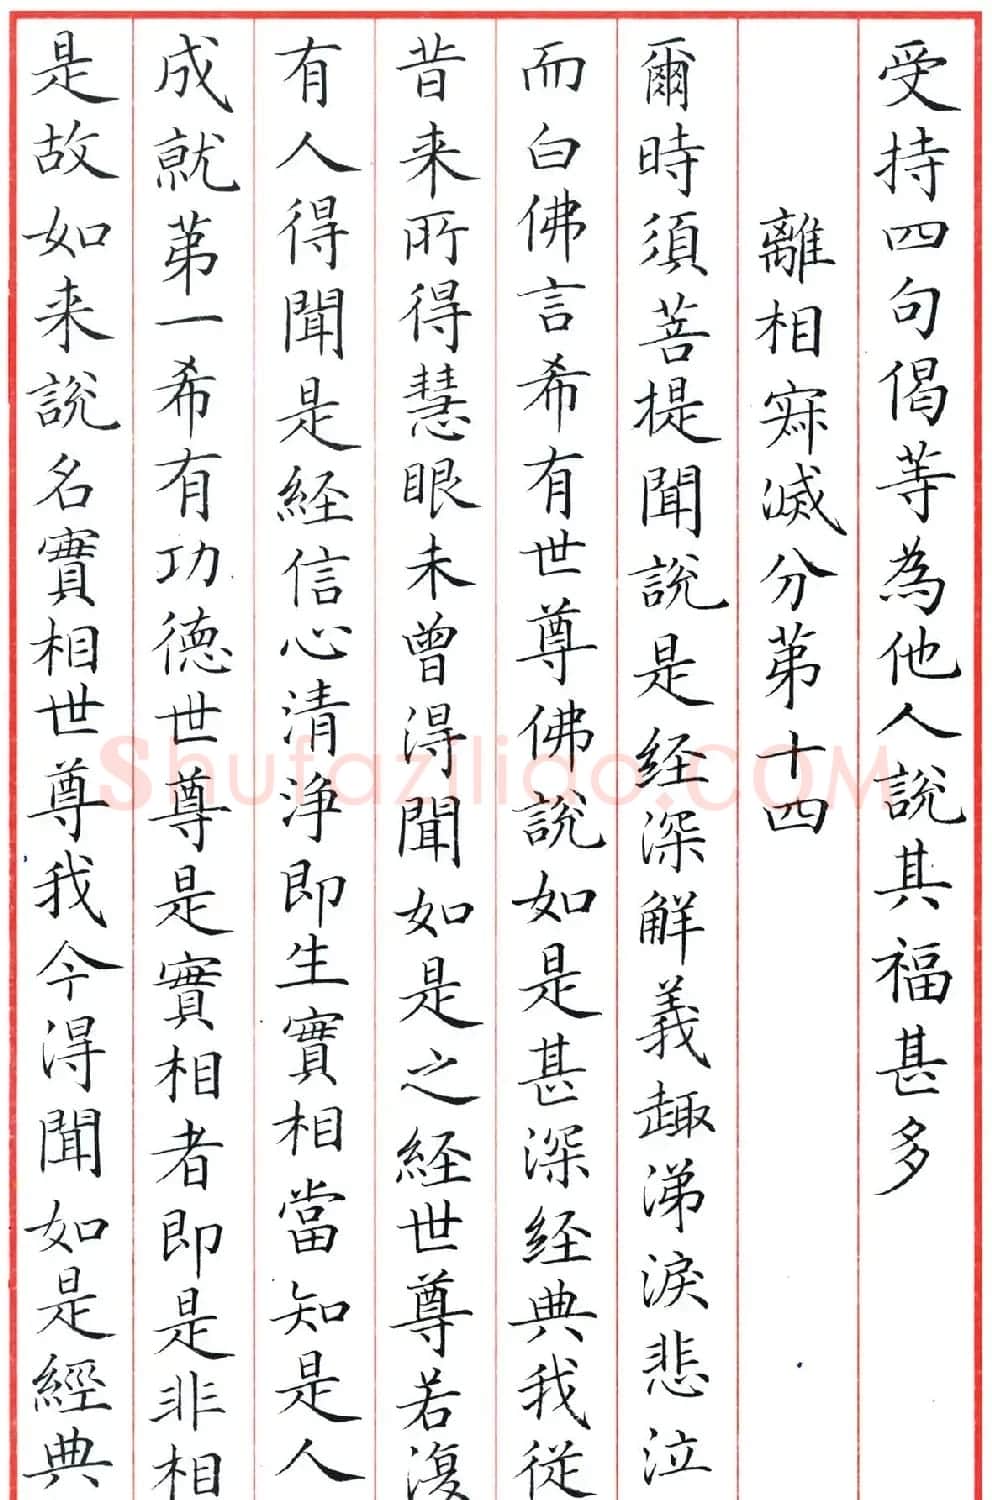 受持四句偈等為他人說其福甚多
離相寂滅分第十四
爾時須菩提聞說是経深解義趣涕淚悲泣
而白佛言希有世尊佛說如是甚深経典我從
昔来所得慧眼未曾得聞如是之経世尊若復
有人得聞是経信心清淨即生實相當知是人
成就第一希有功德世尊是實相者即是非相
是故如来說名實相世尊我今得聞如是經典
Shufaziliao.COM